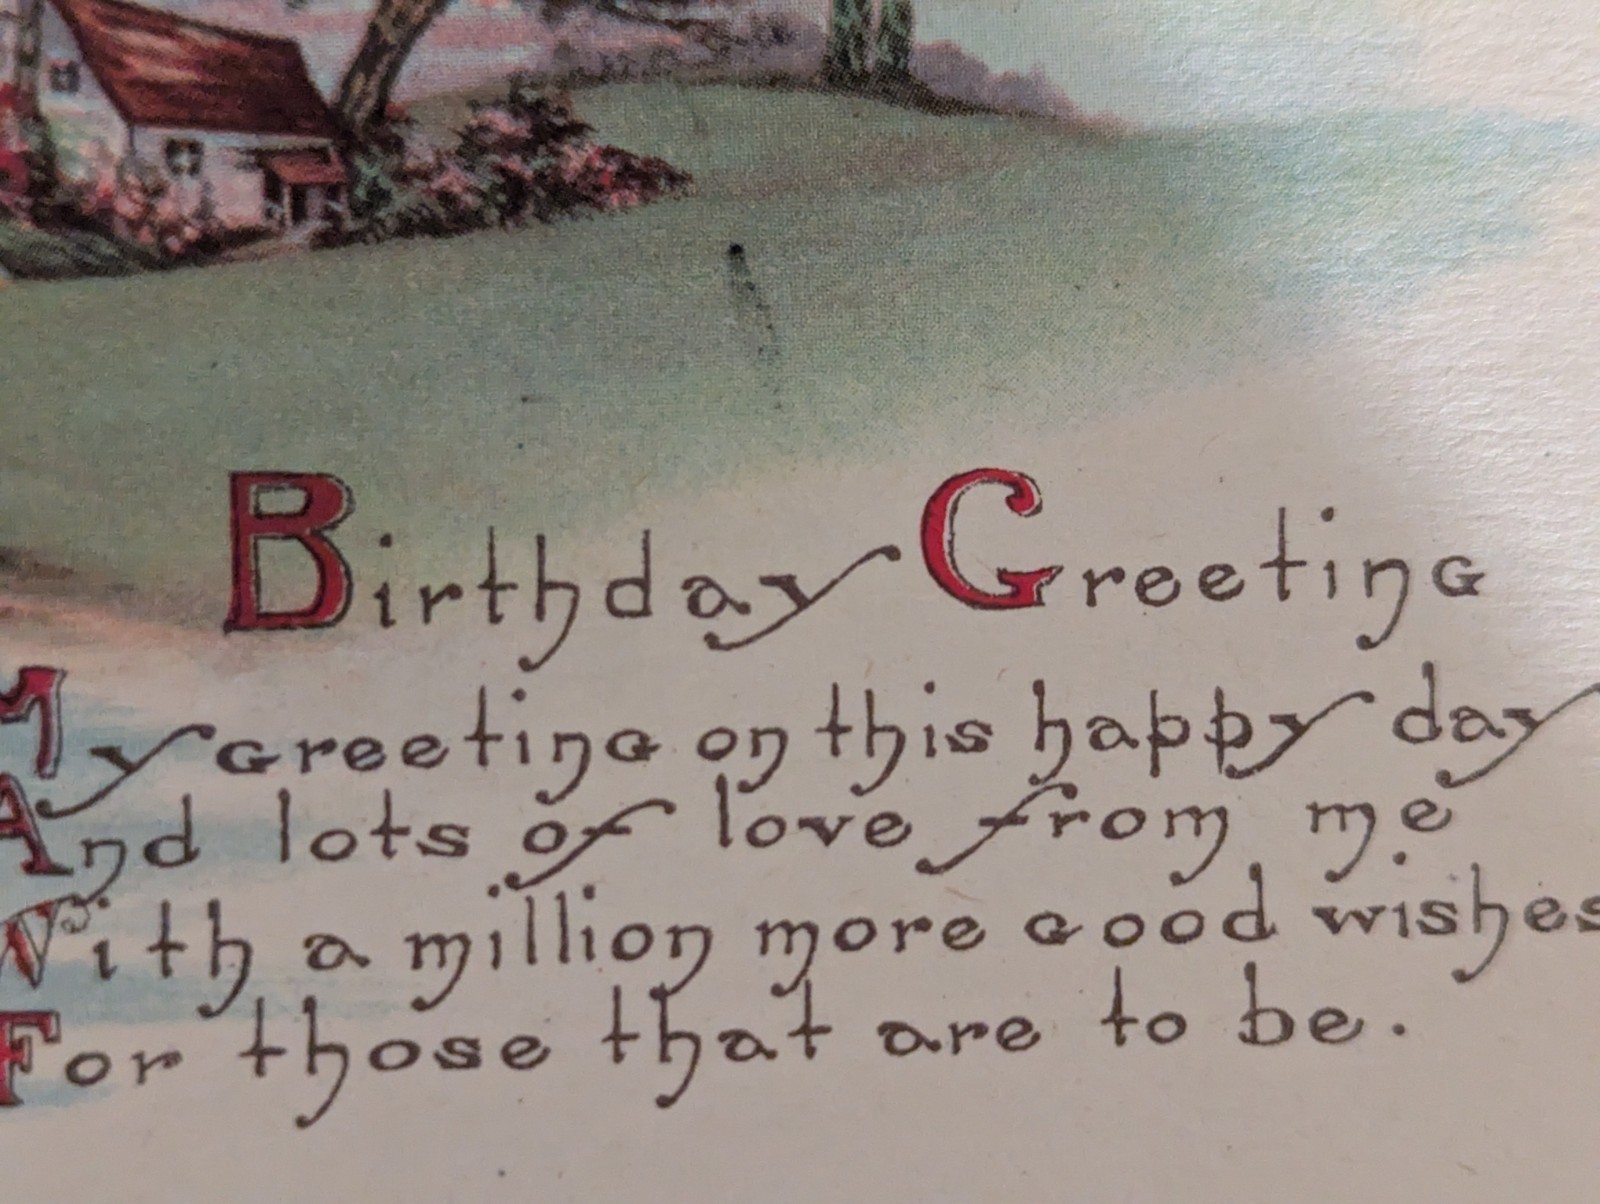 Birthday Greeting
My greeting on this happy day
And lots of love from me
With a million more good wishes
For those that are to be.